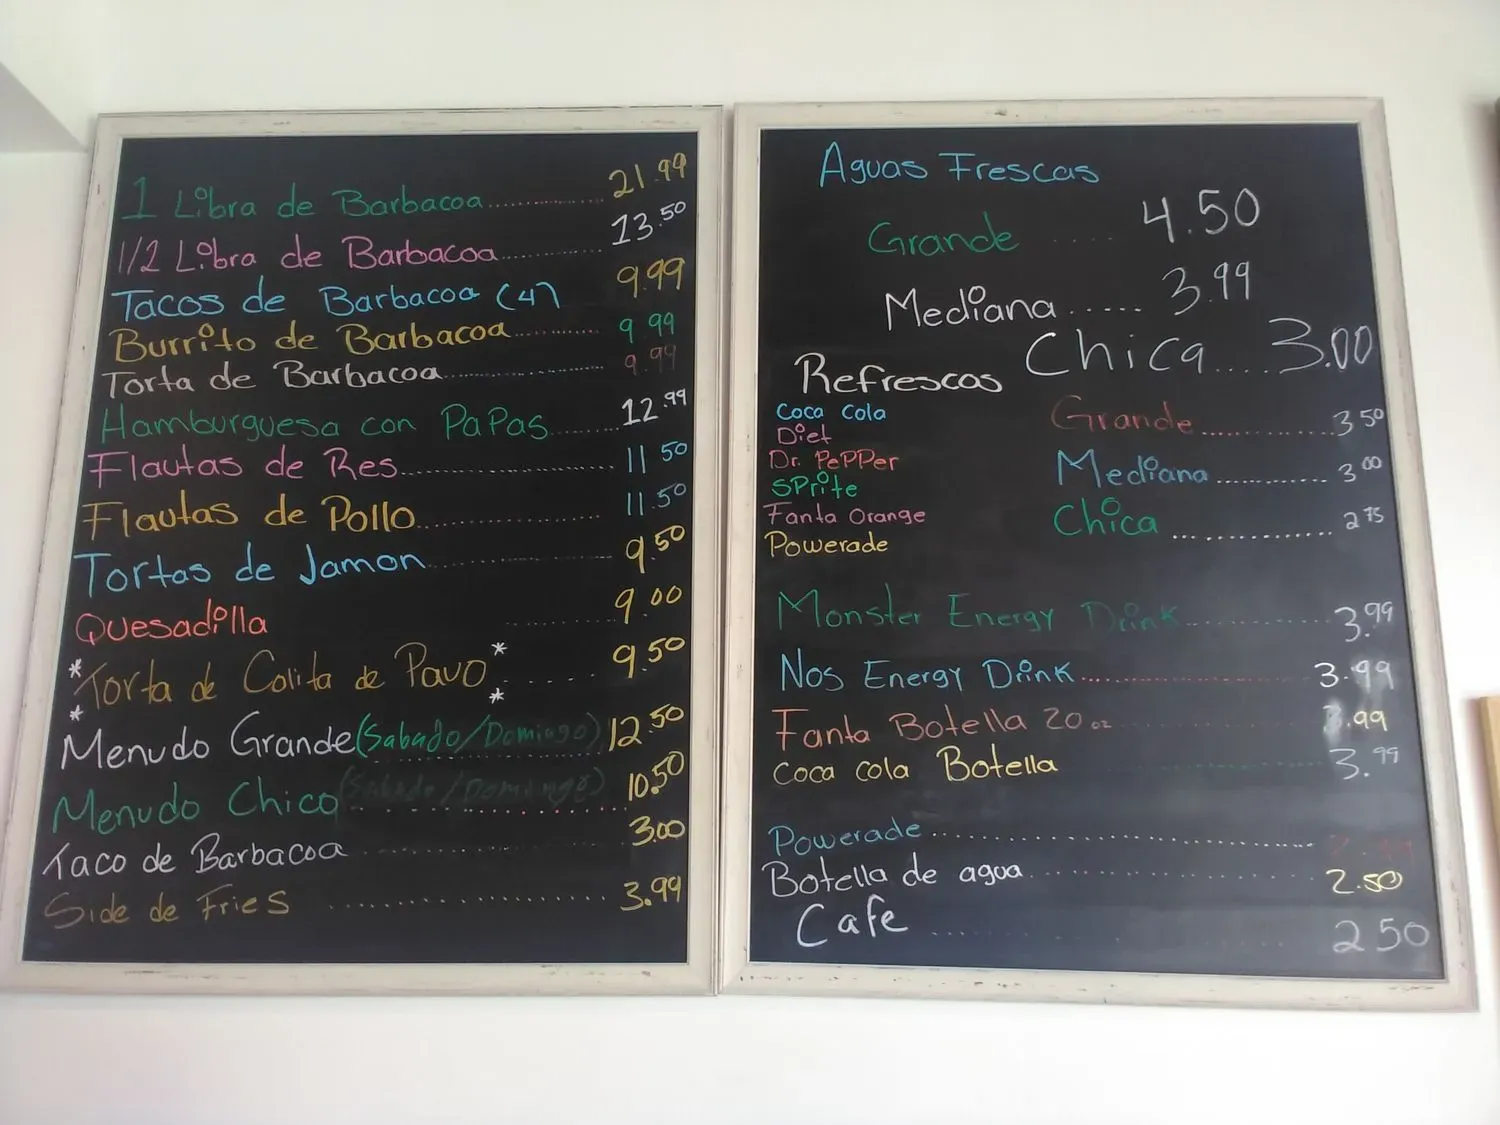 1 Libra de Barbacoa.................... 21.99
1/2 Libra de Barbacoa.................. 13.50
Tacos de Barbacoa (4) 9.99
Burrito de Barbacoa............ 9.99
Torta de Barbacoa.................... 9.99
Hamburguesa con PaPas........... 12.99
Flautas de Res........................... 11 50
Flautas de Pollo........................ 11.50
Tortas de Jamon....................... 9.50
Quesadilla ............ 9.00
*Torta de Colita de Pavo* ...... 9.50
* Menudo Grande (Sabado/Domingo) * 12.50
Menudo Chico (Sabado/Domingo) 10.50
Taco de Barbacoa .................. 3.00
Side de Fries ...................... 3.99
Aguas Frescas
Grande ...... 4.50
Mediana ..... 3.99
Chica .... 3.00
Refrescos
Coca Cola
Diet
Dr. PePPer
SPrite
Fanta Orange
Powerade
Grande.................. 3 50
Mediana............... 3 00
Chica ................. 2 75
Monster Energy Drink................ 3.99
Nos Energy Drink......................... 3.99
Fanta Botella 20 oz .................. .99
Coca Cola Botella .................. 3.99
Powerade ........................................
Botella de agua ........................ 2.50
Cafe ........................ 2 50